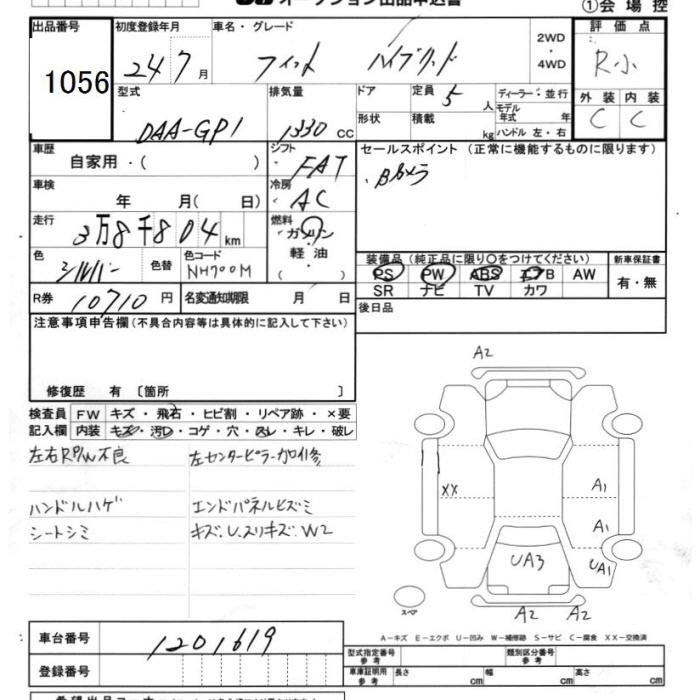 ①会 場 控
出品番号 初度登録年月 車名・グレード 評 価 点
1056 24 7 月 フィット ハイブリッド 2WD ・ 4WD R小
型式 排気量 ドア 定員 5 人 ディーラー・並行 外 装 内 装
DAA-GP1 1330 cc 形状 積載 kg モデル年式 年 C C
ハンドル 左・右
車歴 自家用・( ) シフト FAT セールスポイント (正常に機能するものに限ります)
車検 年 月( 日) 冷房 AC ・Bカメラ
走行 3万8千804 km 燃料 ガソリン ・ 軽 油 ( )
色 シルバー 色替 色コード NH700M
装備品 (純正品に限り○をつけてください) 新車保証書
PS PW ABS エアB AW 有・無
SR ナビ TV カワ
R券 10710 円 名変通知期限 月 日 後日品
注意事項申告欄(不具合内容等は具体的に記入して下さい)
修復歴 有 〔箇所 〕
検査員 FW キズ・飛石・ヒビ割・リペア跡・×要
記入欄 内装 キズ・汚れ・コゲ・穴・スレ・キレ・破レ
左右RP/W不良 左センターピラー加修
ハンドルハゲ エンドパネルヒズミ
シートシミ キズ.U.スリキズ.W2
A2
XX
A1
A1
UA3
UA1
スペア
A2 A2
A-キズ E-エクボ U-凹み W-補修跡 S-サビ C-腐食 XX-交換済
車台番号 1201619
型式指定番号 参考 類別区分番号 参考
登録番号 車庫証明用 参考 長さ cm 幅 cm 高さ cm